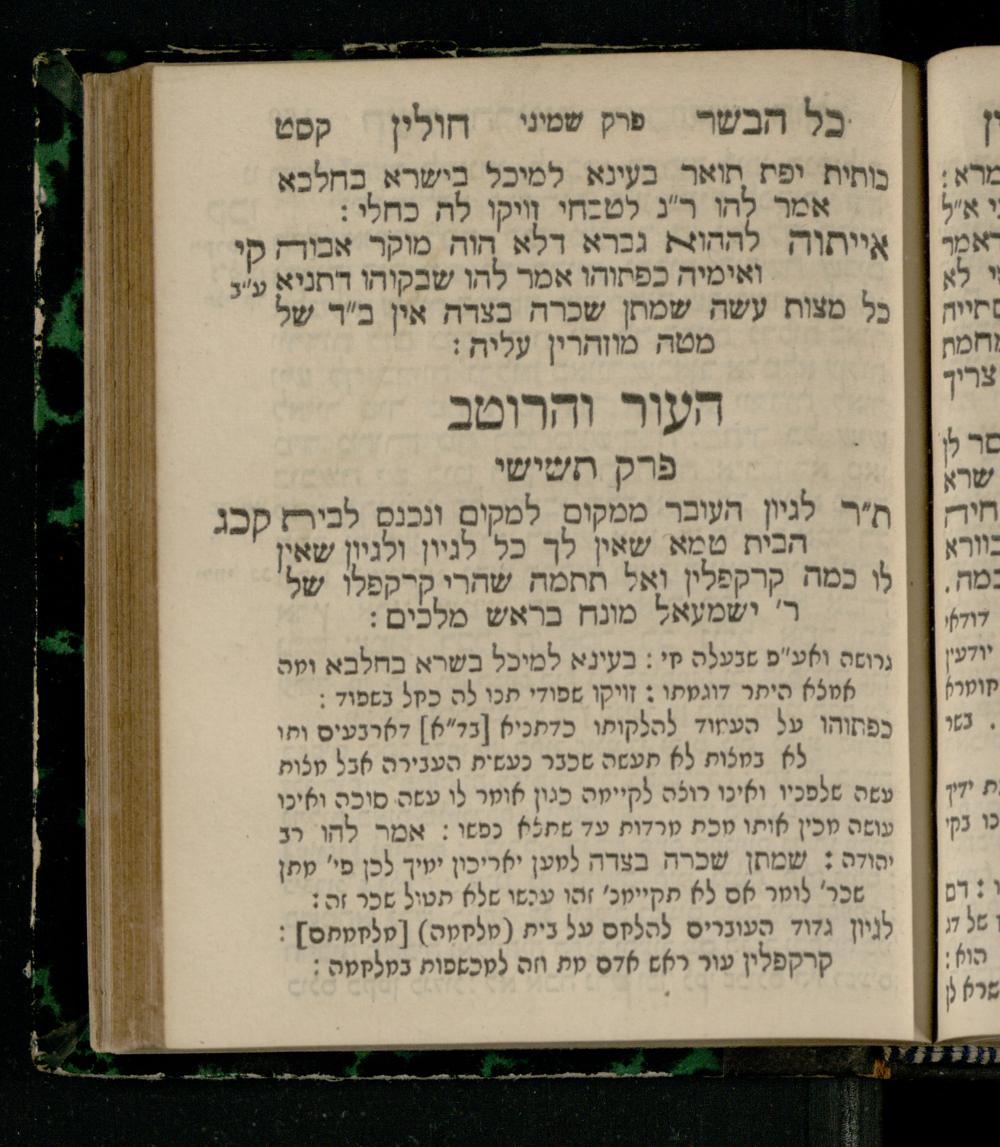 כל הבשר פרק שמיני חולין קסט
כותית יפת תואר בעינא למיכל בישרא בחלבא
אמר להו ר״נ לטבחי זויקו לה כחלי :
אייתוה לההוא גברא דלא הוה מוקר אבוה קי
ואימיה כפתוהו אמר להו שבקוהו דתניא ע״ב
כל מצות עשה שמתן שכרה בצדה אין ב״ד של
מטה מוזהרין עליה :
העור והרוטב
פרק תשישי
ת״ר לגיון העובר ממקום למקום ונכנס לבית קכג
הבית טמא שאין לך כל לגיון ולגיון שאין
לו כמה קרקפלין ואל תתמה שהרי קרקפלו של
ר׳ ישמעאל מונח בראש מלכים :
גרושה ואע״פ שבעלה חי : בעינא למיכל בשרא בחלבא ומה
אמצא היתר דוגמתו : זויקו שפודי תנו לה כחל בשפוד :
כפתוהו על העמוד להלקותו כדתניא [בד״א] דארבעים ותו
לא במצות לא תעשה שכבר נעשית העבירה אבל מצות
עשה שלפניו ואינו רוצה לקיימה כגון אומר לו עשה סוכה ואינו
עושה מכין אותו מכת מרדות עד שתצא נפשו : אמר להו רב
יהודה : שמתן שכרה בצדה למען יאריכון ימיך לכן פי׳ מתן
שכר׳ לומר אם לא תקיימנ׳ זהו ענשו שלא תטול שכר זה :
לגיון גדוד העוברים להלחם על בית (מלחמה) [מלחמתם] :
קרקפלין עור ראש אדם מת וזה למכשפות במלחמה :